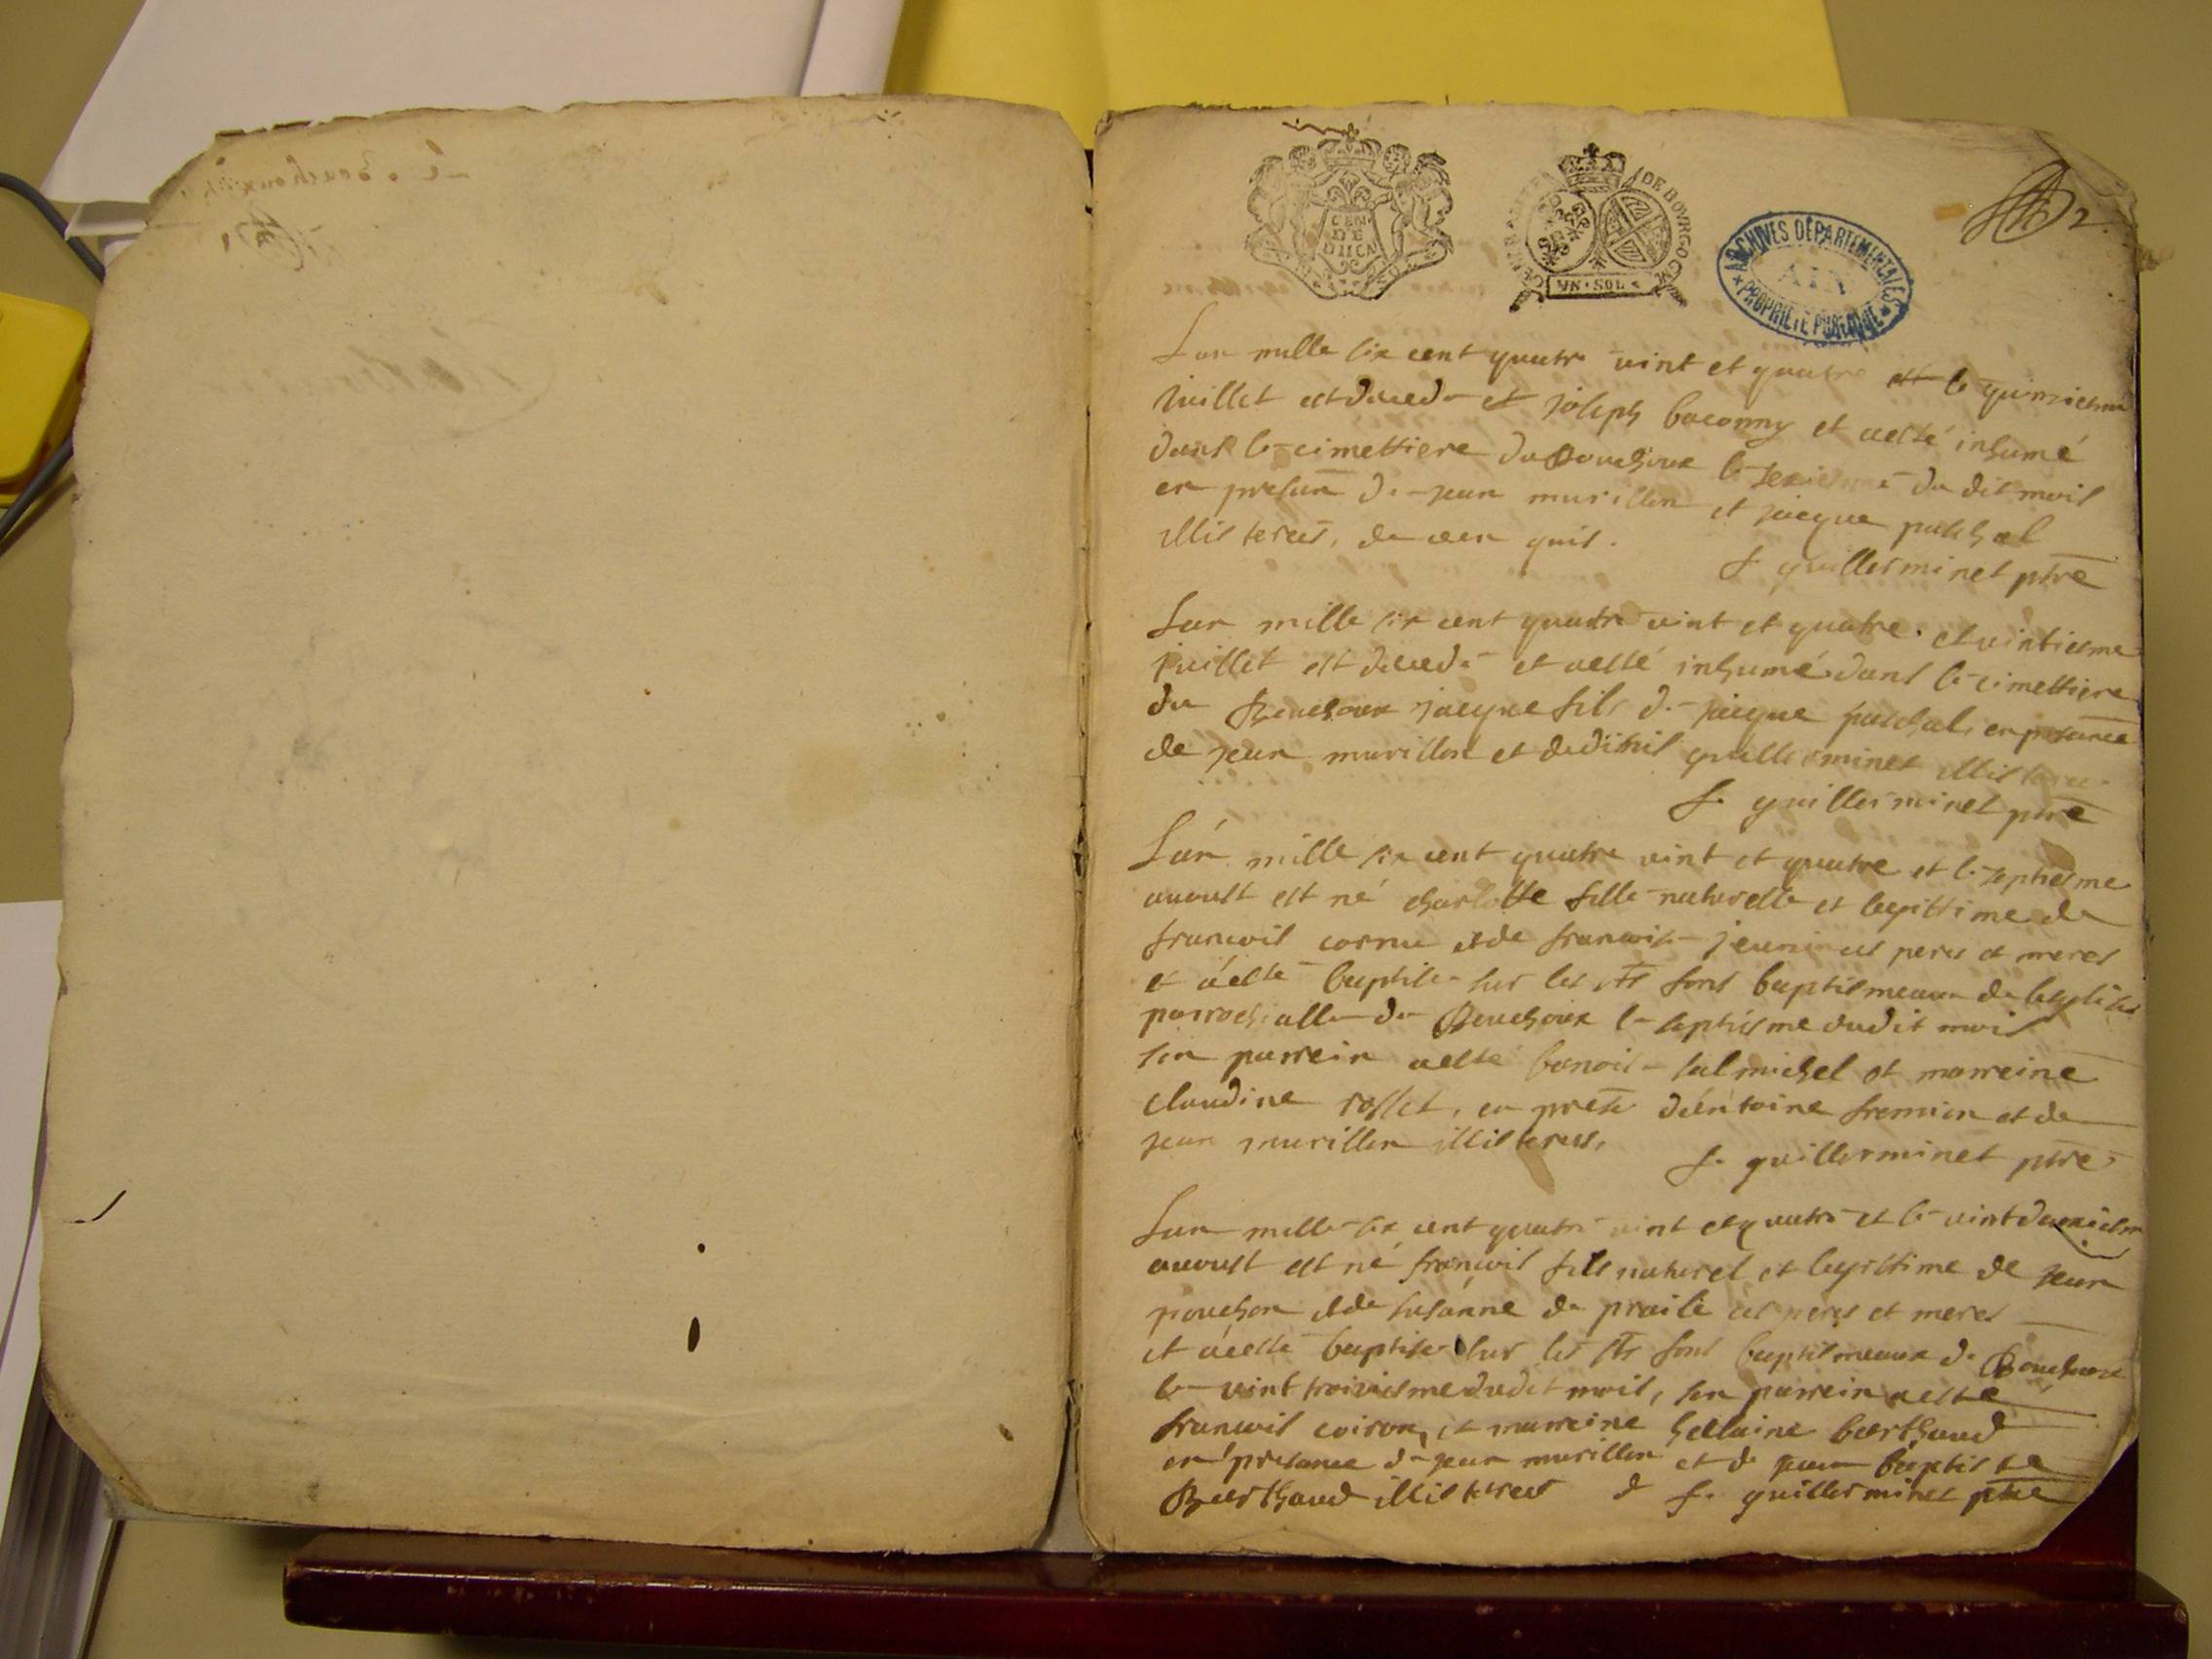 GENERALITE DE BOVRGOGNE
VN · SOL
ARCHIVES DÉPARTEMENTALES
AIN
PROPRIÉTÉ PUBLIQUE
2
Lan mille six cent quatre vint et quatre et le quinziesme
Juillet est decede et joseph baconny et aesté inhumé
dans le cimettiere du Bouchoux le sexiesme du dit mois
en presance de jean murillon et jacque paschal
illisteres, de ce en quis.
f guillerminet ptre
Lan mille six cent quatre vint et quatre et vintiesme
juillet est decede et aesté inhumé dans le cimettiere
du Bouchoux jacque fils de jacque paschal, en presance
de jean murillon et de guillerminet illisteres
f. guillerminet ptre
Lan mille six cent quatre vint et quatre et le septiesme
auoust est né charlotte fille naturelle et legittime de
francois cornu et de francoise ces peres et meres
et aesté baptise sur les sts fons baptismeaux de leglise
parrochialle de Bouchoux le septiesme dudit mois
son parrein aesté benoit salmichel et marreine
claudine rosset, en presce dentoine fremion et de
jean murillon illisteres,
f. guillerminet ptre
Lan mille six cent quatre vint et quatre et le vint deuxiesme
auoust est né francois fils naturel et legittime de jean
pouchon et de susanne de praile ces peres et meres
et aesté baptise sur les sts fons baptismeaux de Bouchoux
le vint troisiesme dudit mois, son parrein aesté
francois coiron, et marreine hellaine berthaud
en presance de jean murillon et de jean baptiste
Berthaud illisteres f. guillerminet ptre